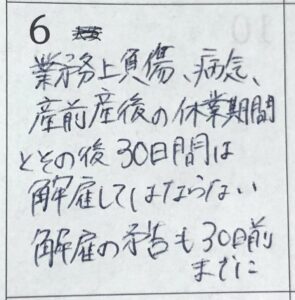 6
業務上負傷、病気、
産前産後の休業期間
とその後30日間は
解雇してはならない
解雇の予告も30日前
までに